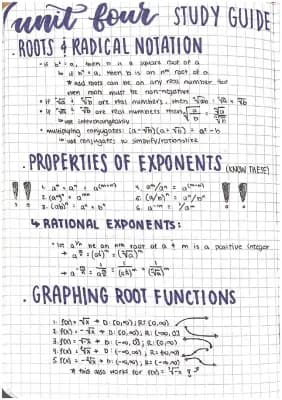 unit four STUDY GUIDE
. ROOTS & RADICAL NOTATION
• if bⁿ = a, then b is an nᵗʰ root of a
* odd roots can be an any real number but
even roots must be non-negative
• if ⁿ√a & ⁿ√b are real numbers, then ⁿ√ab = ⁿ√a · ⁿ√b
• if ⁿ√a & ⁿ√b are real numbers, then
↳ use interchangeably
• multiplying conjugates: (a-√b)(a+√b) = a²-b
↳ use conjugates to simplify/rationalize
. PROPERTIES OF EXPONENTS (KNOW THESE)
!! 1. aᵐ · aⁿ = a⁽ᵐ⁺ⁿ⁾ 4. aᵐ/aⁿ = a⁽ᵐ⁻ⁿ⁾ !!
2. (aᵐ)ⁿ = aᵐⁿ 5. (a/b)ⁿ = aⁿ/bⁿ
3. (ab)ⁿ = aⁿ · bⁿ 6. a⁻ⁿ = 1/aⁿ
↳ RATIONAL EXPONENTS:
• let a^1/n be an nᵗʰ root of a & m is a positive integer
. GRAPHING ROOT FUNCTIONS
1. f(x) = √x → D: [0,∞); R: [0,∞)
2. f(x) = -√x → D: [0,∞); R: (-∞,0]
3. f(x) = √-x → D: (-∞,0]; R: [0,∞)
* this also works for